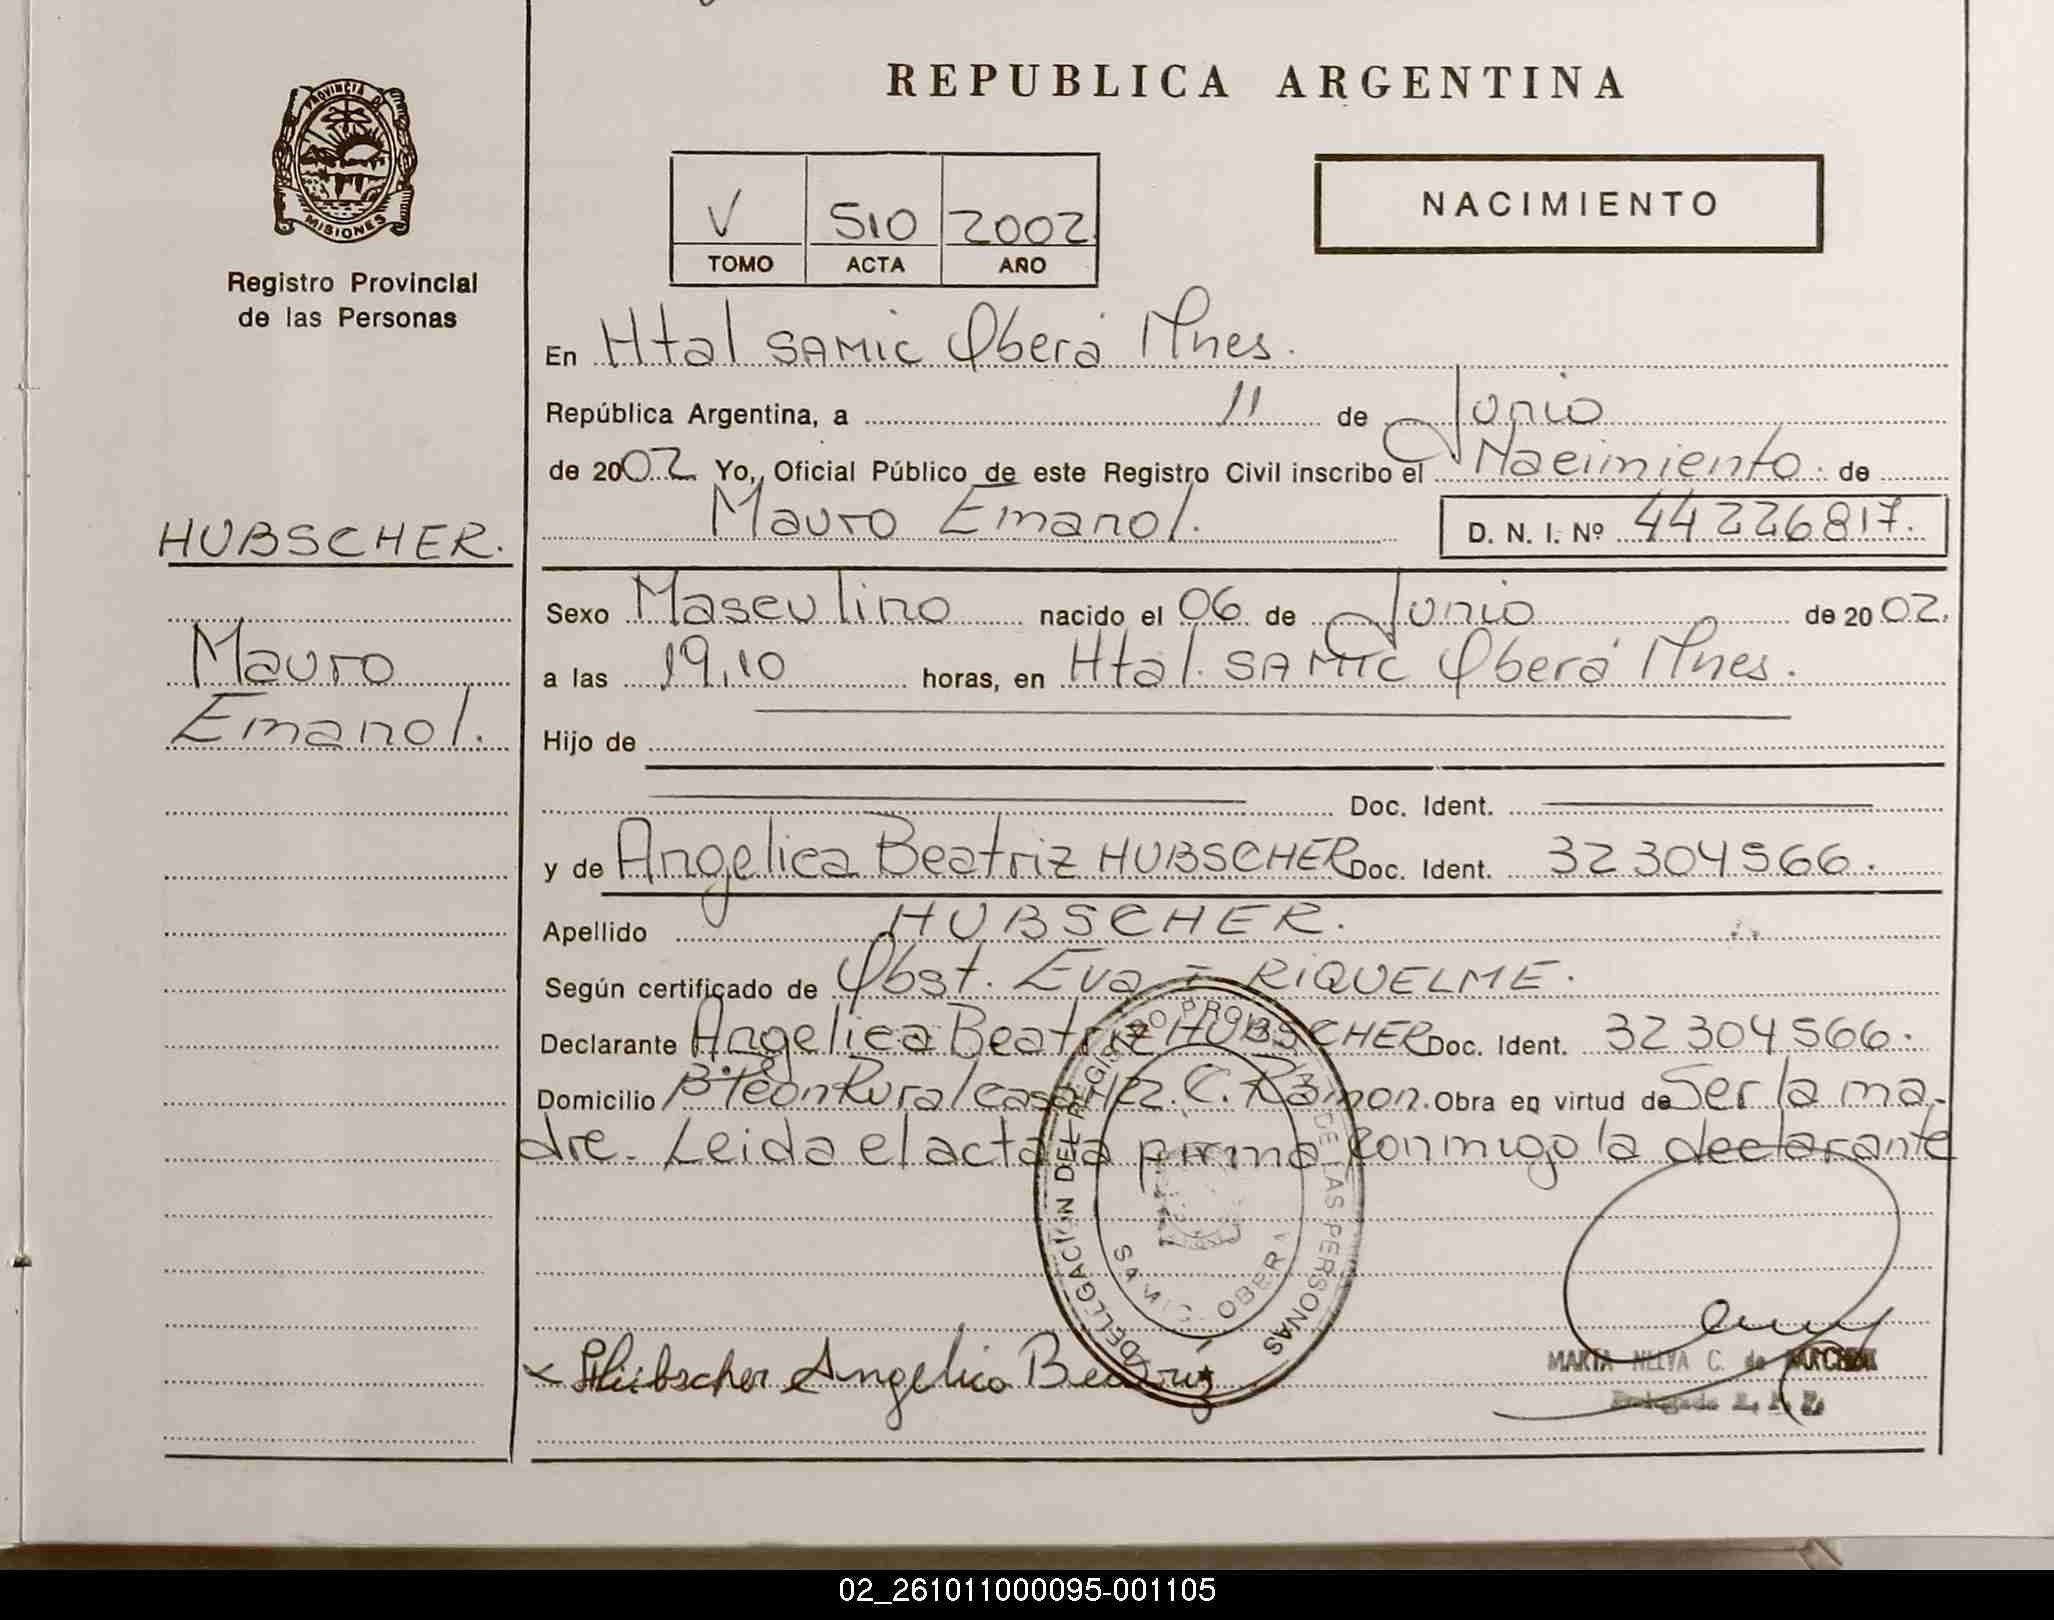 REPUBLICA ARGENTINA
PROVINCIA DE
MISIONES
Registro Provincial
de las Personas
V 510 2002
TOMO ACTA AÑO
NACIMIENTO
En Htal SAMIC Oberá Mnes.
República Argentina, a 11 de Junio
de 2002 Yo, Oficial Público de este Registro Civil inscribo el Nacimiento de
Mauro Emanol. D. N. I. Nº 44226817.
HUBSCHER.
Mauro
Emanol.
Sexo Masculino nacido el 06 de Junio de 2002.
a las 19,10 horas, en Htal. SAMIC Oberá Mnes.
Hijo de
Doc. Ident.
y de Angelica Beatriz HUBSCHER Doc. Ident. 32304566.
Apellido HUBSCHER.
Según certificado de Obst. Eva - RIQUELME.
Declarante Angelica Beatriz HUBSCHER Doc. Ident. 32304566.
Domicilio Rural casa C. Ramon. Obra en virtud de Ser la ma-
dre. Leida el acta la firma conmigo la declarante
DELEGACIÓN DEL REGISTRO PROVINCIAL DE LAS PERSONAS
SAMIC. OBERA
Hübscher Angelica Beatriz
MARTA NELVA C. de
02_261011000095-001105